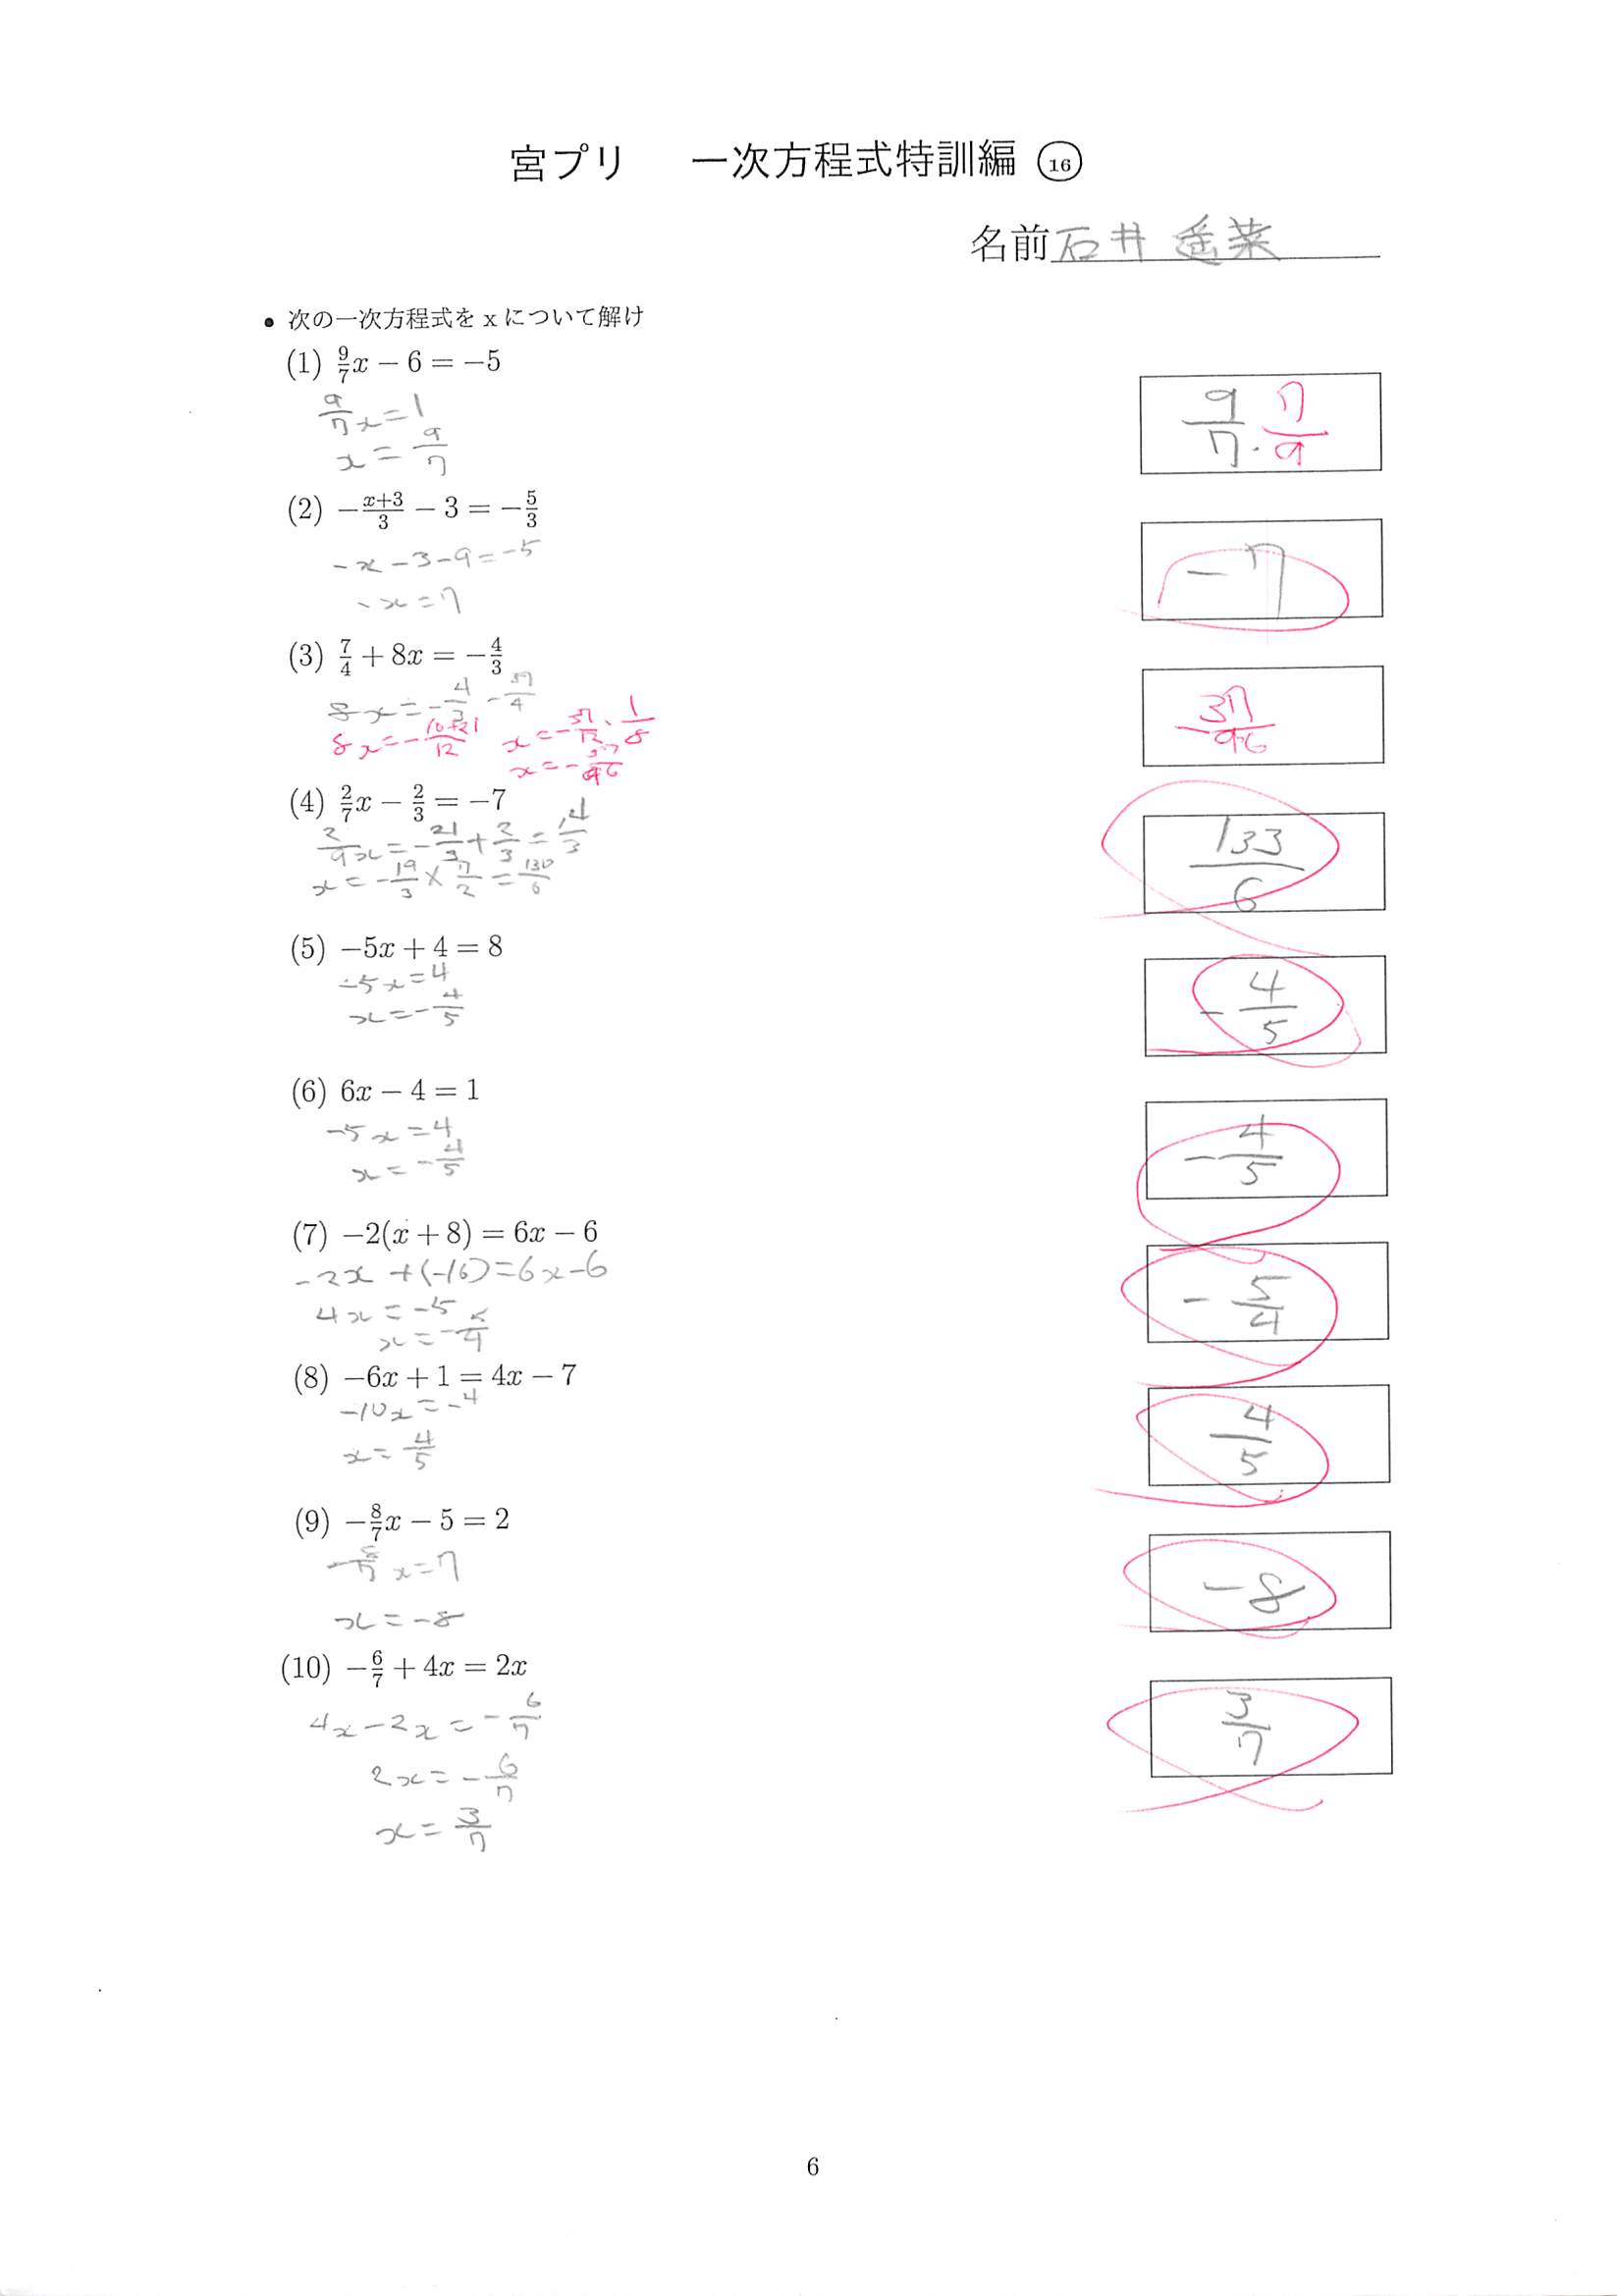 宮プリ 一次方程式特訓編 ⑯
名前 石井 遥菜
• 次の一次方程式をxについて解け
(1) 9/7x − 6 = −5
9/7x = 1
x = 9/7
9/7 . 7/9
(2) −(x+3)/3 − 3 = −5/3
-x-3-9=-5
-x=7
-7
(3) 7/4 + 8x = −4/3
8x=-16+21/12
x=-37/12·1/8
x=-37/96
-37/96
(4) 2/7x − 2/3 = −7
x=-19/3×7/2=
133/6
(5) −5x + 4 = 8
-5x=4
x=-4/5
-4/5
(6) 6x − 4 = 1
-5x=4
x=-4/5
-4/5
(7) −2(x + 8) = 6x − 6
-2x+(-16)=6x-6
4x=-5
x=-5/4
-5/4
(8) −6x + 1 = 4x − 7
-10x=-4
x=4/5
4/5
(9) −8/7x − 5 = 2
x=7
x=-8
-8
(10) −6/7 + 4x = 2x
4x-2x=-6/7
2x=-6/7
x=3/7
3/7
6